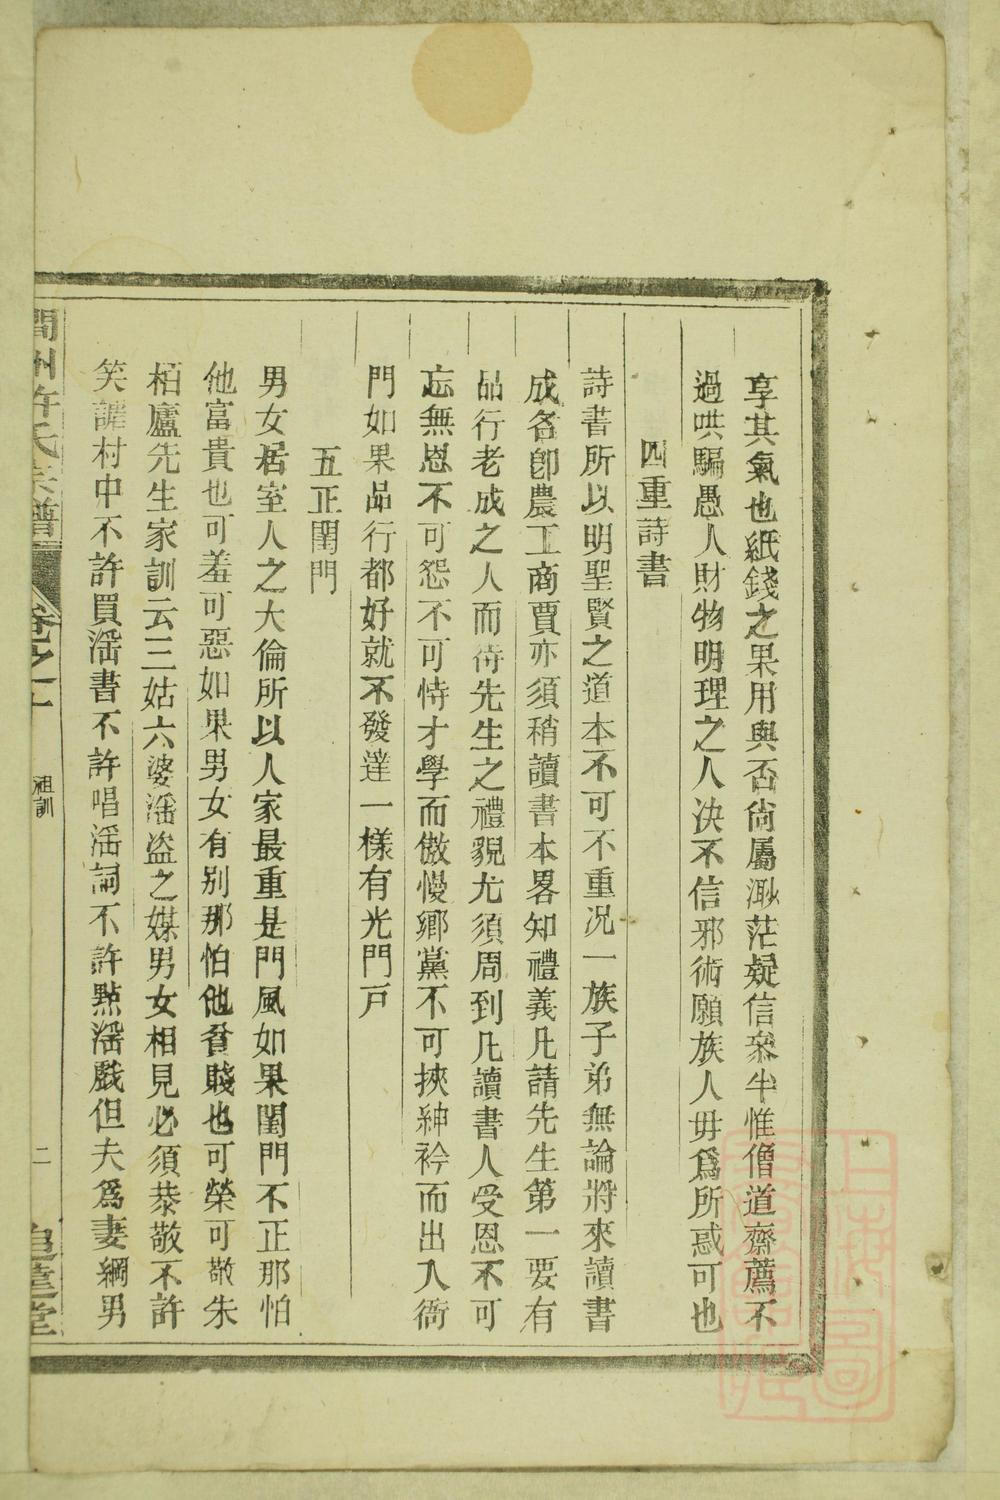 享其氣也紙錢之果用與否尙屬渺茫疑信叅半惟僧道齋薦不
過哄騙愚人財物明理之人決不信邪術願族人毋爲所惑可也
四重詩書
詩書所以明聖賢之道本不可不重况一族子弟無論將來讀書
成名卽農工商賈亦須稍讀書本畧知禮義凡請先生第一要有
品行老成之人而待先生之禮貌尤須周到凡讀書人受恩不可
忘無恩不可怨不可恃才學而傲慢鄉黨不可挾紳衿而出入衙
門如果品行都好就不發達一樣有光門戸
五正閨門
男女居室人之大倫所以人家最重是門風如果閨門不正那怕
他富貴也可羞可惡如果男女有别那怕他貧賤也可榮可敬朱
栢廬先生家訓云三姑六婆滛盗之媒男女相見必須恭敬不許
笑謔村中不許買滛書不許唱滛詞不許㸃滛戲但夫爲妻綱男
潤州許氏宗譜
卷之一
祖訓
二
追遠堂